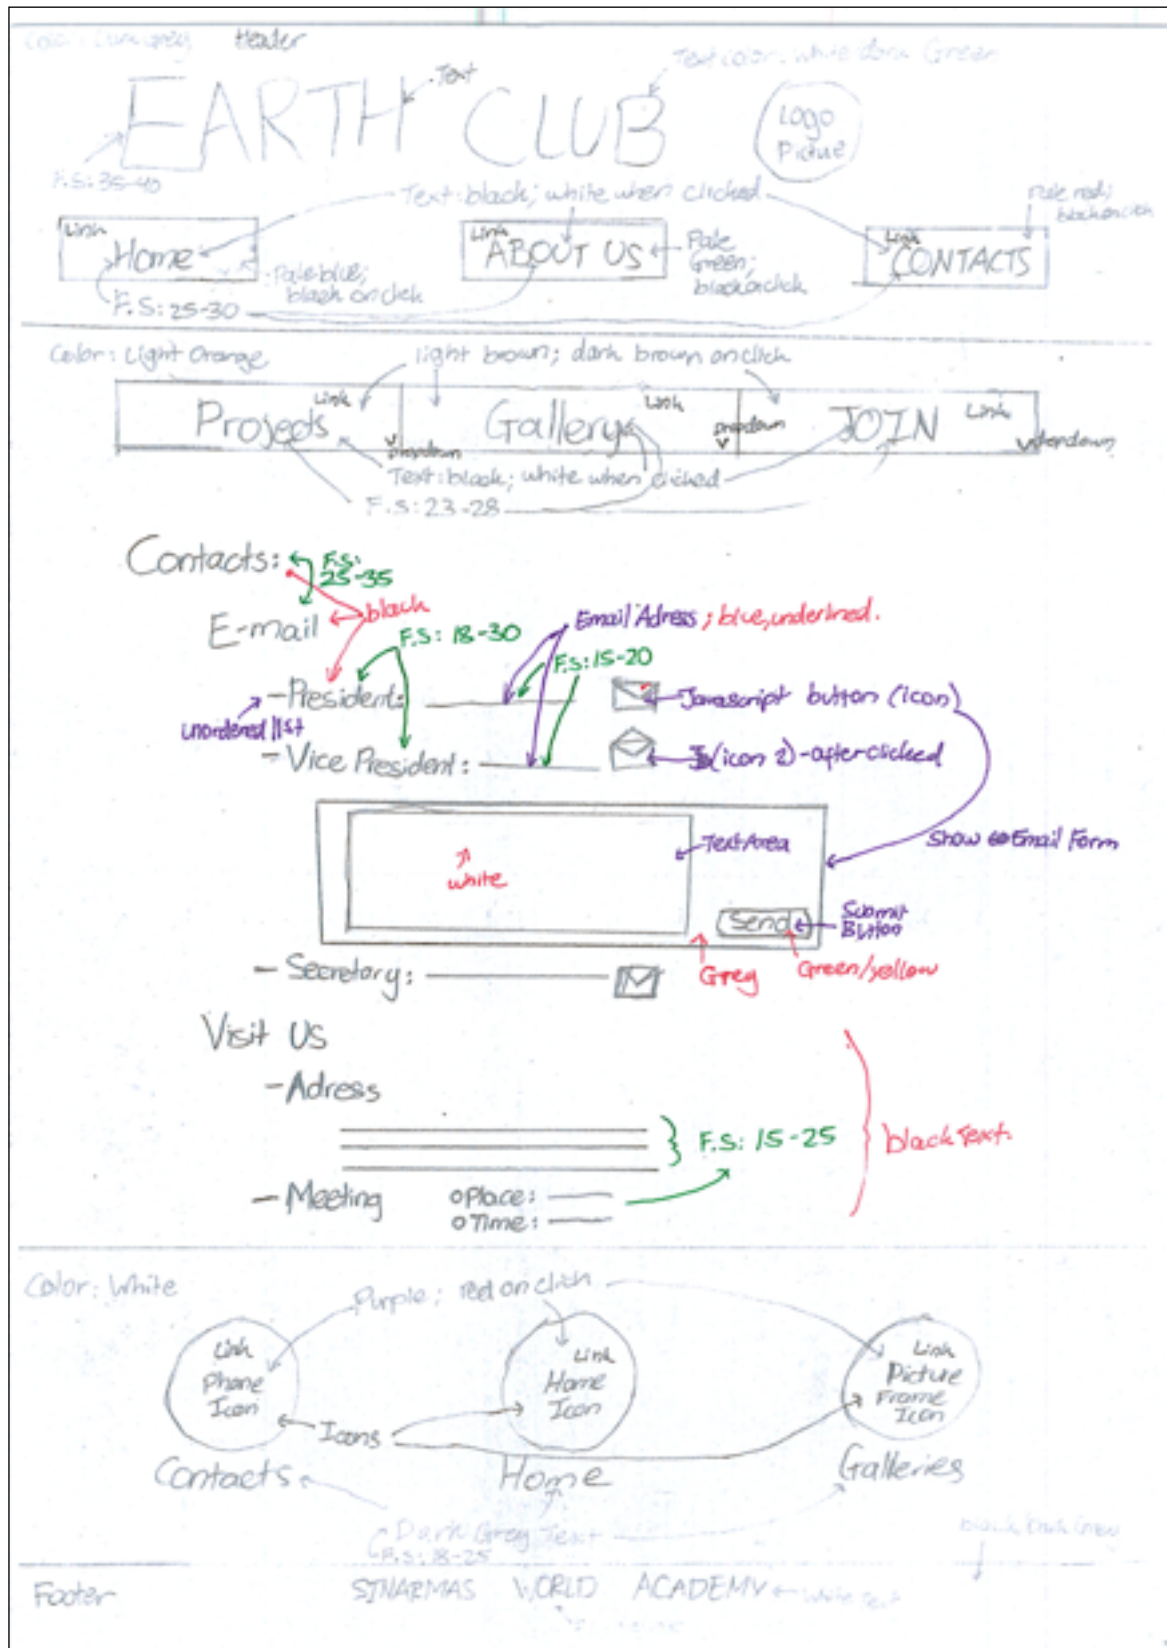 Color: Dark grey Header
Text color: white/dark Green
Text
EARTH CLUB
Logo
Picture
F.S: 35-40
Text: black; white when clicked
Pale red;
black on click
Link
Home
Link
ABOUT US
Link
CONTACTS
Pale blue;
black on click
Pale
Green;
black on click
F.S: 25-30
Color: Light Orange
light brown; dark brown on click
Projects Link
dropdown
Gallery Link
Dropdown
JOIN Link
dropdown
Text: black; white when clicked
F.S: 23-28
Contacts:
F.S:
25-35
E-mail
black
F.S: 18-30
Email Adress; blue, underlined.
F.S: 15-20
-President:
Javascript button (icon)
unordered list
- Vice President:
(icon 2)-after clicked
Text Area
white
Show Email Form
Send
Submit
Button
- Secretary:
Grey
Green/yellow
Visit US
-Adress
F.S: 15-25
black text.
- Meeting
o Place:
o Time:
Color: White
Purple; red on click
Link
Phone
Icon
Link
Home
Icon
Link
Picture
Frame
Icon
Icons
Contacts
Home
Galleries
Dark Grey Text
F.S: 18-25
Footer
SINARMAS WORLD ACADEMY
White Text